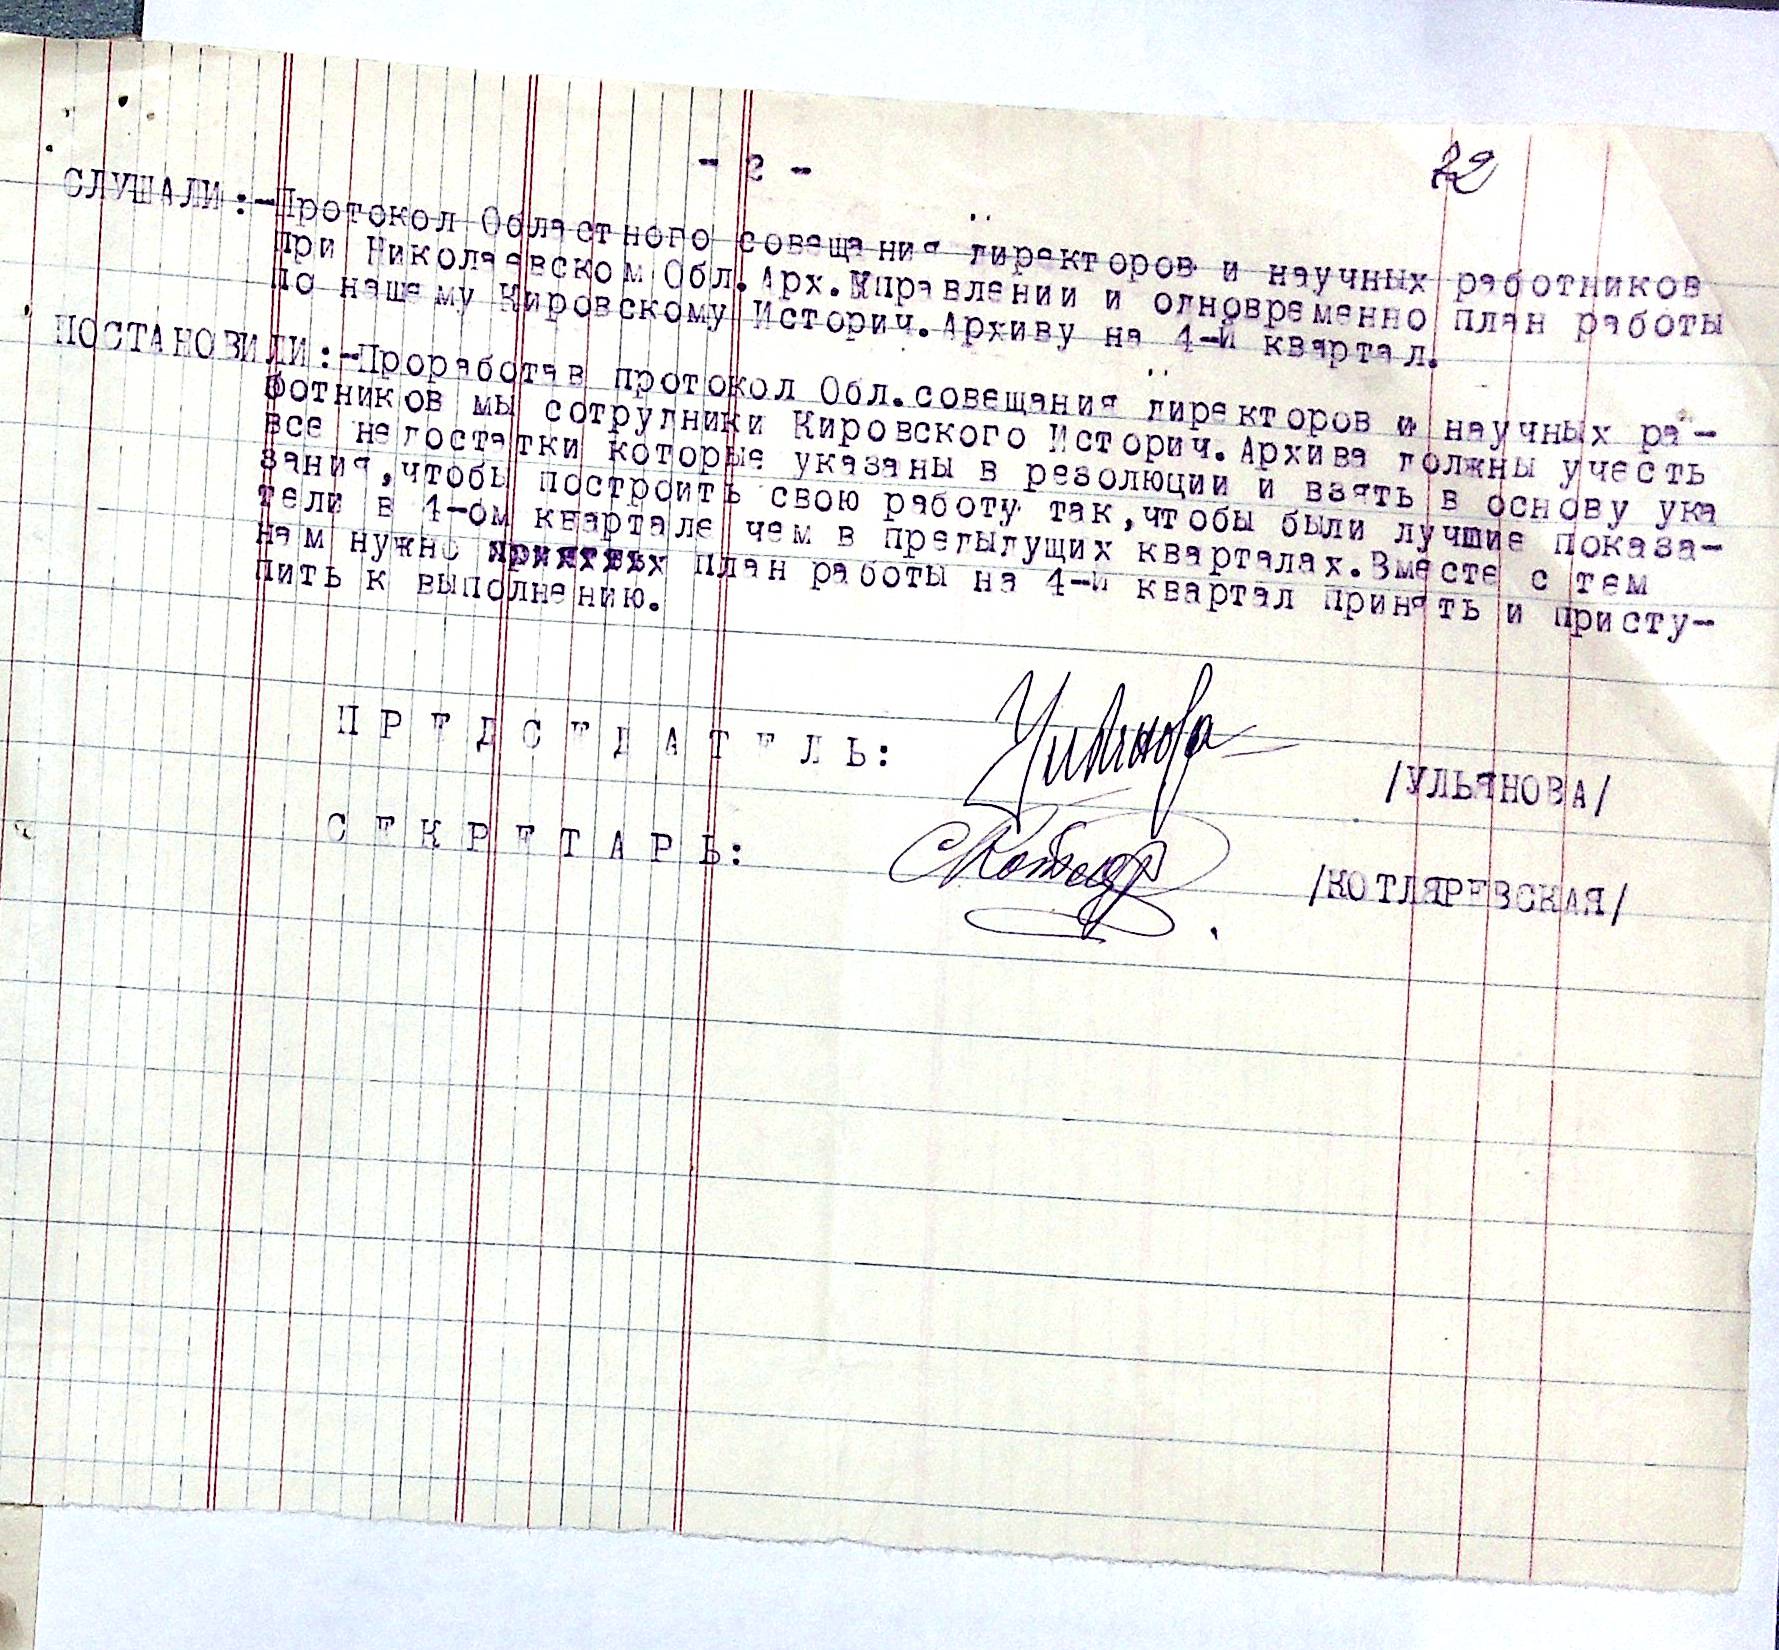 - 2 -
22
СЛУШАЛИ:-Протокол Областного совещания директоров и научных работников
при Николаевском Обл.Арх.Управлении и одновременно план работы
по нашему Кировскому Историч.Архиву на 4-й квартал.
ПОСТАНОВИЛИ:-Проработав протокол Обл.совещания директоров и научных ра-
ботников мы сотрудники Кировского Историч.Архива должны учесть
все недостатки которые указаны в резолюции и взять в основу ука
зания,чтобы построить свою работу так,чтобы были лучшие показа-
тели в 4-ом квартале чем в предыдущих кварталах.Вместе с тем
нам нужно план работы на 4-й квартал принять и присту-
пить к выполнению.
П Р Е Д С Е Д А Т Е Л Ь:
Ульянова
/УЛЬЯНОВА/
С Е К Р Е Т А Р Ь:
/КОТЛЯРЕВСКАЯ/